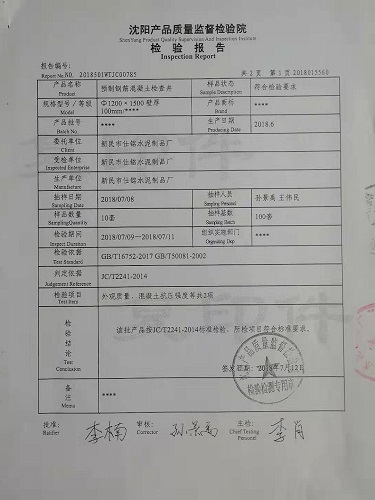 沈阳产品质量监督检验院
ShenYang Product Quality Supervision And Inspection Institute
检 验 报 告
Inspection Report
报告编号:
Report No.NO. 2018501WTJC00785 共 2 页 第 1 页 2018015560
产品名称 Product 预制钢筋混凝土检查井 样品状态 Sample Description 符合检验要求
规格型号/等级 Model Φ1200×1500 壁厚 100mm/**** 产品商标 Brand ****
产品批号 Batch No. **** 生产日期 Producing Date 2018.6
委托单位 Client 新民市仕铭水泥制品厂
受检单位 Inspected Enterprise 新民市仕铭水泥制品厂
生产单位 Manufacture 新民市仕铭水泥制品厂
抽样日期 Sampling Date 2018/07/08 抽样人员 Sampling Personal 孙景禹 王伟民
样品数量 SamplingQuantity 10套 抽样基数 Sampling Batch 100套
检验期间 Inspect Duration 2018/07/09—2018/07/11 组织实施部门 Organizing Dep. ****
检验依据 Test Standard GB/T16752-2017 GB/T50081-2002
判定依据 Judgement Reference JC/T2241-2014
检验项目 Test Item 外观质量、混凝土抗压强度等共2项
检验结论 Test Conclusion 该批产品按JC/T2241-2014标准检验，所检项目符合标准要求。
签发日期: 2018年7月12日
检验检测专用章
备注 Memo ****
批准: Ratifier 李楠 审核: Corrector 孙景禹 主检: Chief Testing Personel 李月